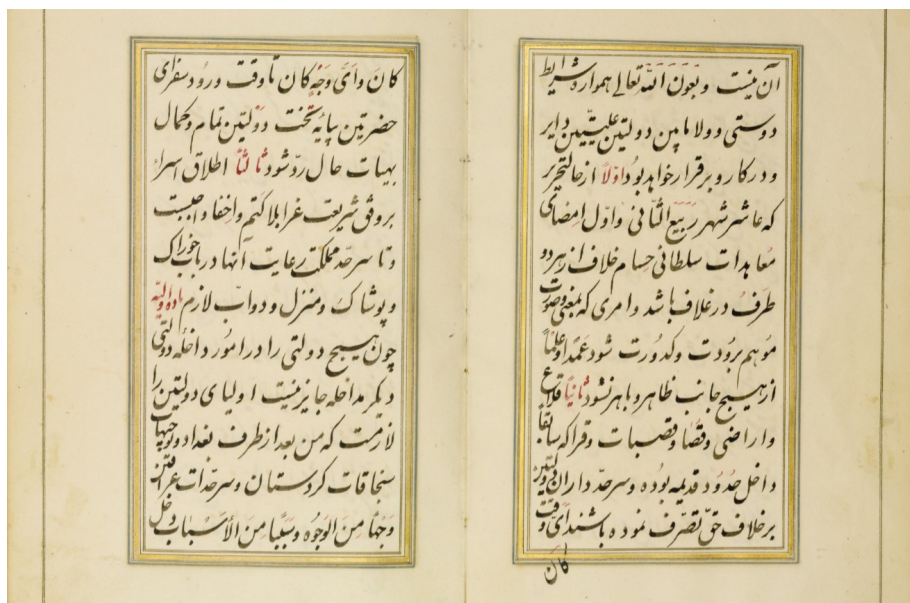 آن نیست و بعون الله تعالی همواره شرایط
دوستی و ولا مابین دولتین علیتین دایر
و در کار و برقرار خواهد بود اوّلاً از حالتحریر
که عاشر شهر ربیع الثّانی و اوّل امضای
معاهدات سلطانی حسام خلاف از هر دو
طرف در غلاف باشد و امری که بمعنی و صورت
موهم برودت و کدورت شود عمداً و علماً
از هیچ جانب ظاهر و باهر نشود ثانیاً قلاع
و اراضی و قضا و قصبات و قرا که سابقاً
داخل حدود قدیمه بوده و سرحدّ داران دولتین
بر خلاف حقّ تصرّف نموده باشند ایّ وقت
کان
کانَ و ایّ وَجهٍ کان تا وقت ورود سفرای
حضرتین بپایه تخت دولتین تمام و کمال
بهیات حال ردّ شود ثالثاً اطلاق اسراء
بر وفق شریعت غرا بلا کتم و اخفا واجبست
و تا سرحدّ مملکت رعایت آنها در باب خوراک
و پوشاک و منزل و دوابّ لازم ماده اولیه
چون هیچ دولتی را در امور داخله دولتی
دیگر مداخله جایز نیست اولیای دولتین را
لازمست که من بعد از طرف بغداد و توجیهات
سنجاقات کردستان و سرحدات عراقین
وَجهاً مِنَ الوجُوه و سَبَباً مِنَ الأسْباب دخل